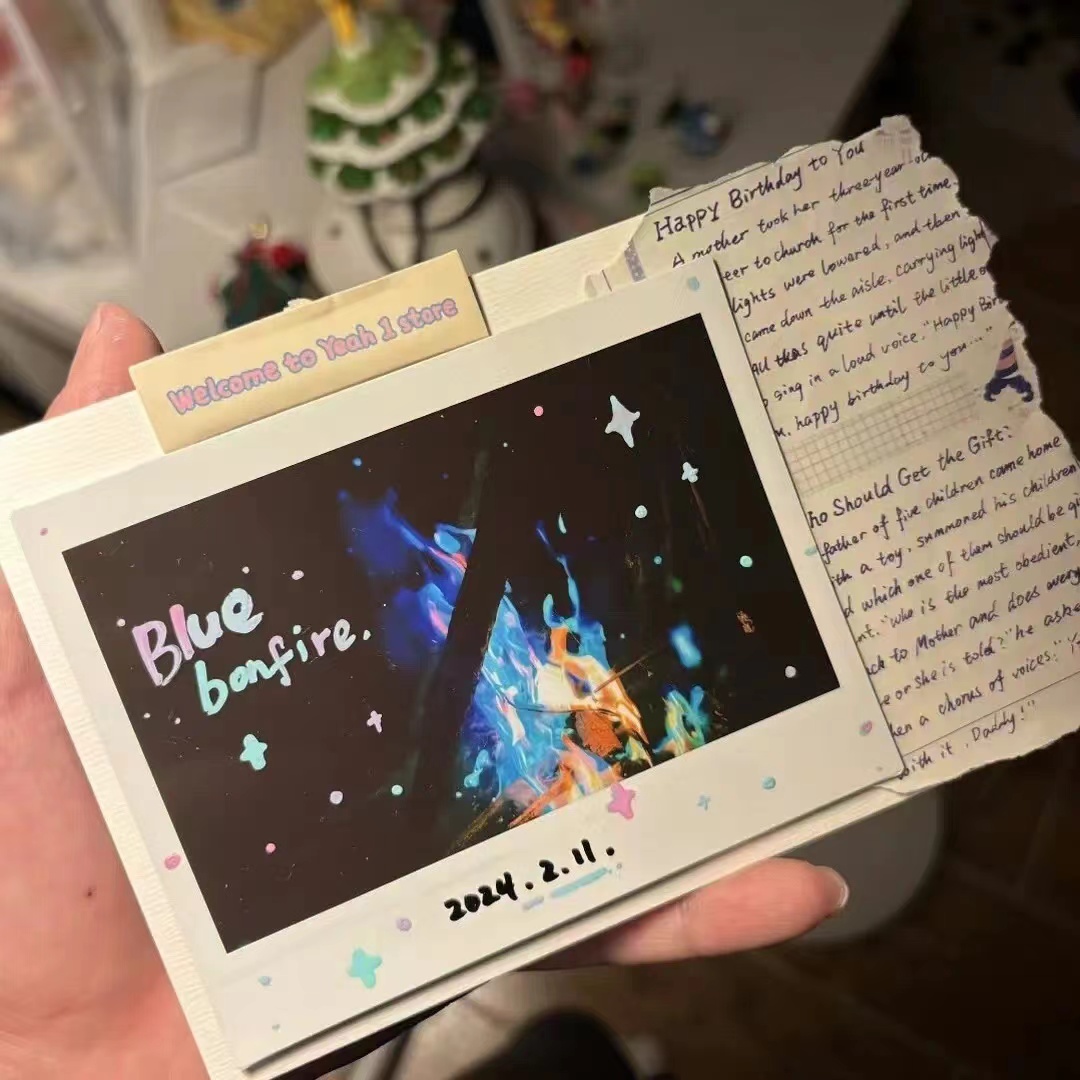 Welcome to Yeah 1 store
Blue
bonfire.
2024.2.11.
Happy Birthday to You
A mother took her three-year-ol
eer to church for the first time
lights were lowered, and then
came down the aisle, carrying light
was quite until the little o
sing in a loud voice. "Happy Bir
happy birthday to you..."
ho Should Get the Gift?
father of five children came home
th a toy, summoned his children
d which one of them should be gi
nt. "Who is the most obedient,
ck to Mother and does every
e or she is told?" he aske
en a chorus of voices: "Y
with it, Daddy!"